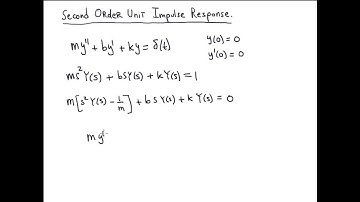 Second Order Unit Impulse Response.
my'' + by' + ky = δ(t)
y(0) = 0
y'(0) = 0
ms²Y(s) + bsY(s) + kY(s) = 1
m[s²Y(s) - 1/m] + bsY(s) + kY(s) = 0
my'